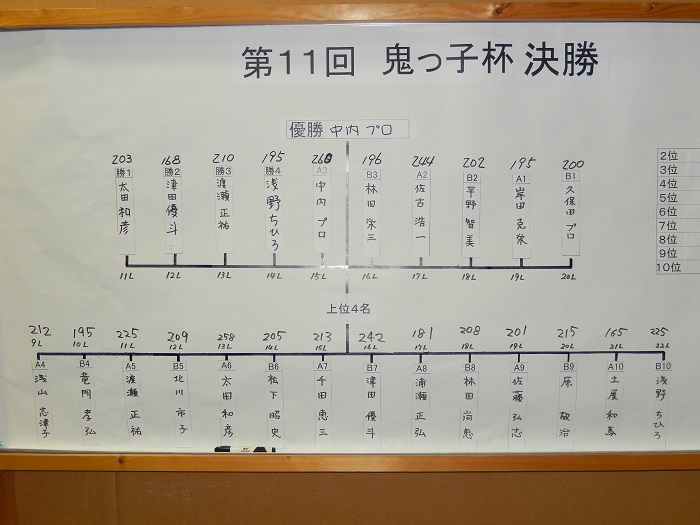 第11回 鬼っ子杯 決勝
優勝 中内 プロ
203 168 210 195 268 196 244 202 195 200
勝1 勝2 勝3 勝4 A3 B3 A2 B2 A1 B1
太田 和彦 津田 優斗 渡瀬 正祐 浅野 ちひろ 中内 プロ 林田 栄三 佐古 浩一 平野 智美 岸田 克栄 久保田 プロ
11L 12L 13L 14L 15L 16L 17L 18L 19L 20L
2位
3位
4位
5位
6位
7位
8位
9位
10位
上位4名
212 195 225 209 258 205 213 242 181 208 201 215 165 225
9L 10L 11L 12L 13L 14L 15L 16L 17L 18L 19L 20L 21L 22L
A4 B4 A5 B5 A6 B6 A7 B7 A8 B8 A9 B9 A10 B10
浅山 志津子 竜門 孝弘 渡瀬 正祐 北川 市子 太田 和彦 松下 昭史 千田 恵三 津田 優斗 浦瀬 正弘 林田 尚恵 佐藤 弘志 原 敬治 土屋 和 浅野 ちひろ